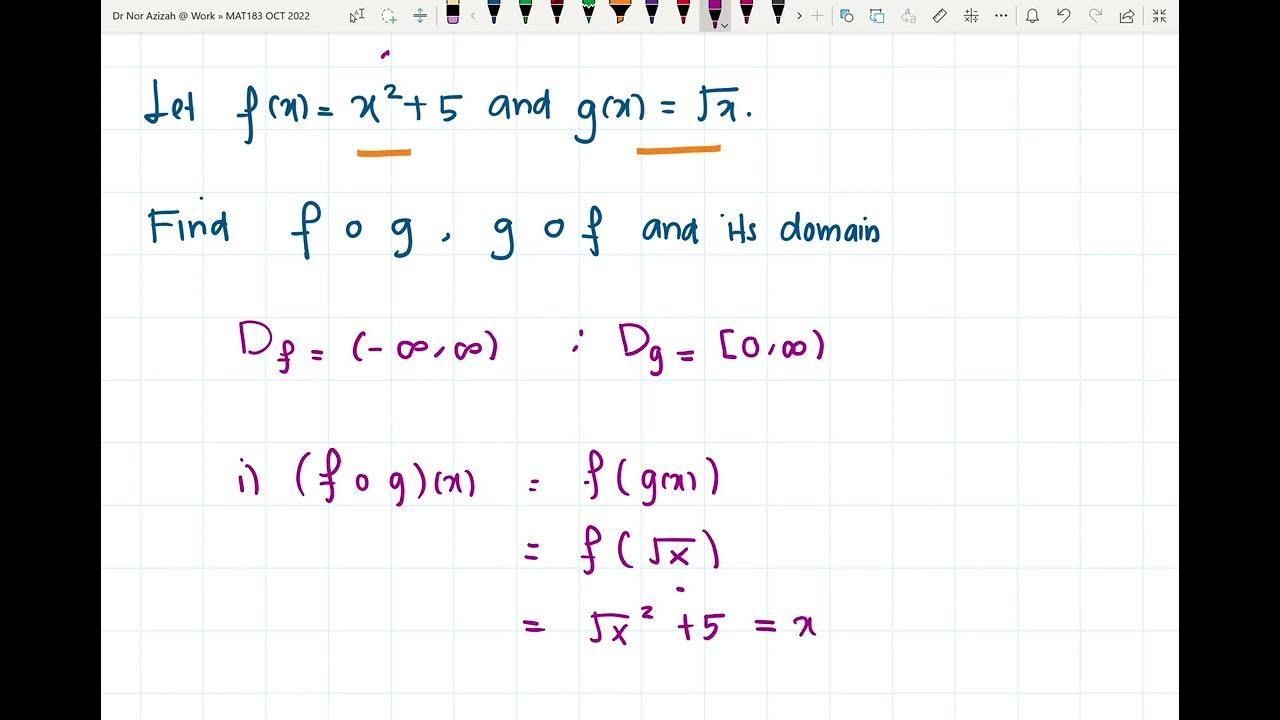 Dr Nor Azizah @ Work » MAT183 OCT 2022
Let f(x) = x² + 5 and g(x) = √x.
Find f o g , g o f and its domain
D_f = (-∞,∞) ; D_g = [0,∞)
i) (f o g)(x) = f(g(x))
= f(√x)
= √x² + 5 = x